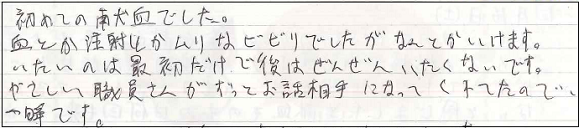 初めての献血でした。
血とか注射とかムリなビビリでしたがなんとかいけます。
いたいのは最初だけで後はぜんぜんいたくないです。
やさしい職員さんがずっとお話相手になってくれてたので、
一瞬です。